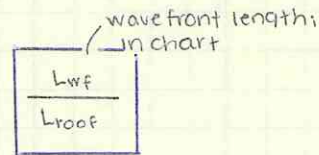 wave front length;
in chart
Lwf
Lroof